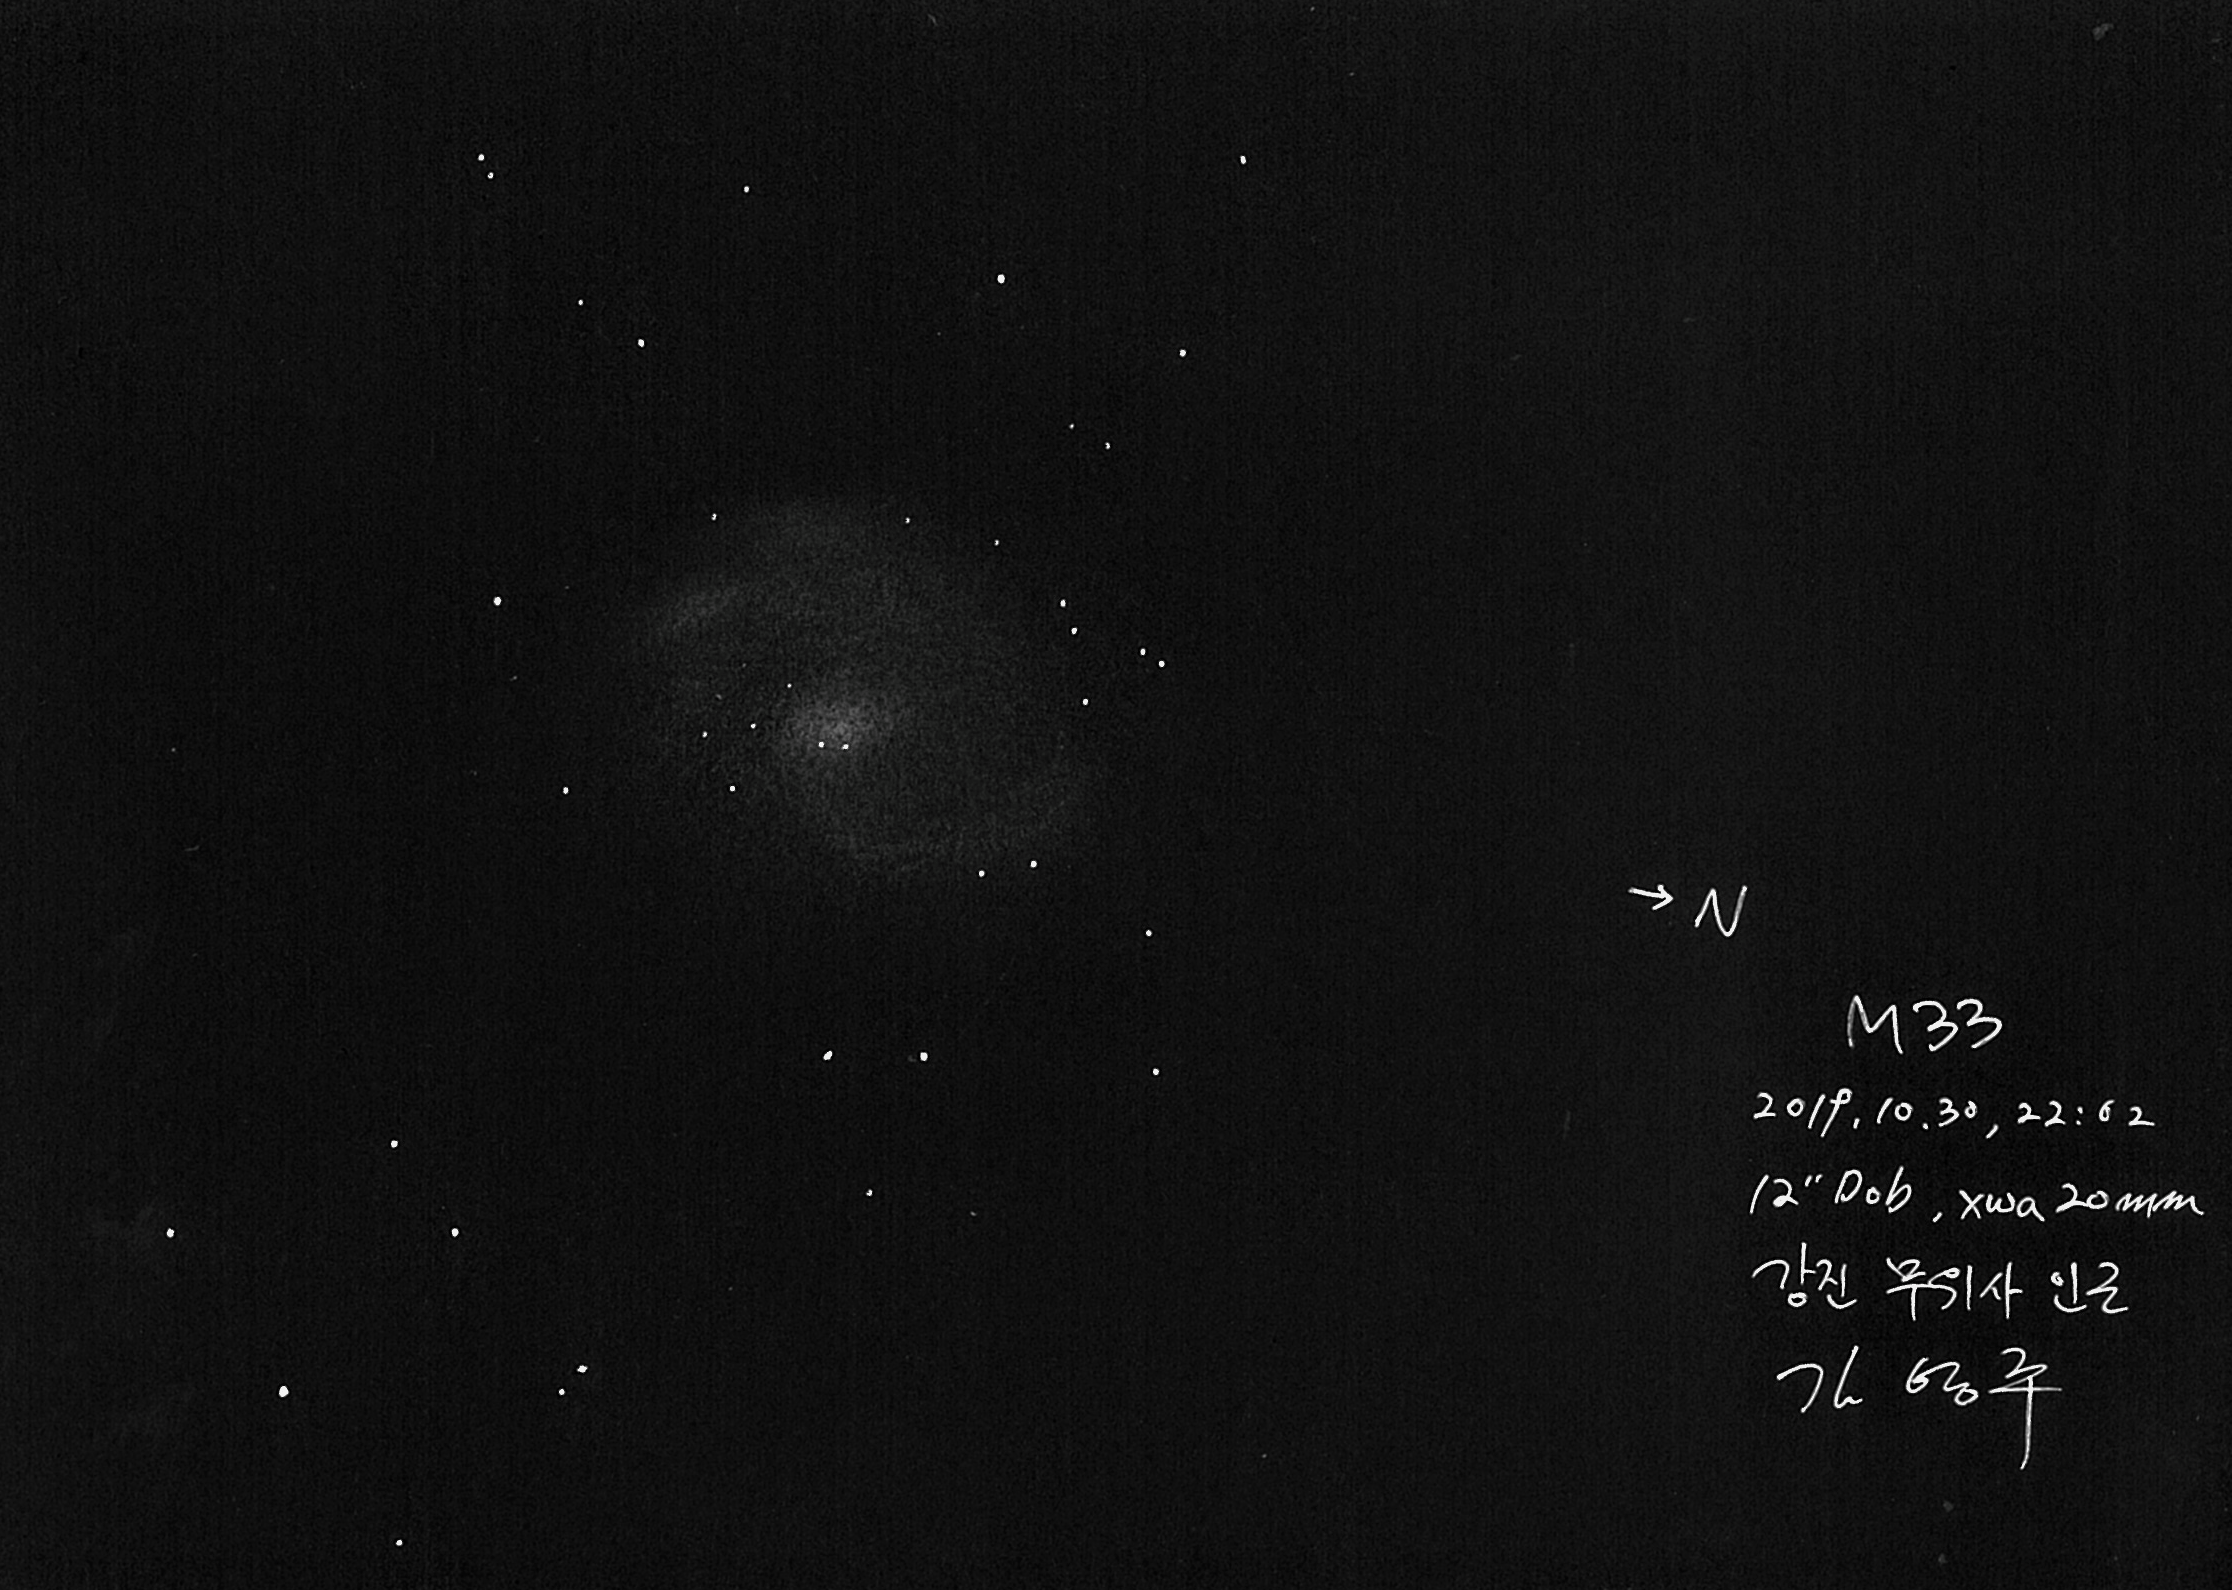 → N
M33
2019.10.30, 22:02
12" Dob, xwa 20mm
강진 무위사 인근
김 영주